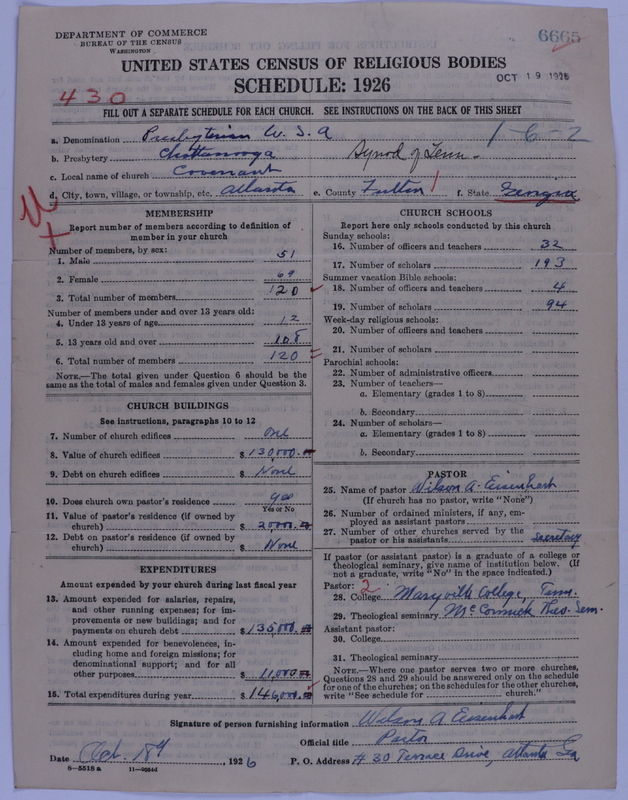 DEPARTMENT OF COMMERCE
BUREAU OF THE CENSUS
WASHINGTON
6665
UNITED STATES CENSUS OF RELIGIOUS BODIES
SCHEDULE: 1926
OCT 19 1926
430
FILL OUT A SEPARATE SCHEDULE FOR EACH CHURCH. SEE INSTRUCTIONS ON THE BACK OF THIS SHEET
a. Denomination Presbyterian U. S. A 1-6-2
b. Presbytery Chattanooga Synod of Tenn.
c. Local name of church Covenant
d. City, town, village, or township, etc. Atlanta e. County Fulton f. State Georgia
MEMBERSHIP
Report number of members according to definition of member in your church
Number of members, by sex:
1. Male 51
2. Female 69
3. Total number of members 120
Number of members under and over 13 years old:
4. Under 13 years of age 12
5. 13 years old and over 108
6. Total number of members 120
NOTE.—The total given under Question 6 should be the same as the total of males and females given under Question 3.
CHURCH BUILDINGS
See instructions, paragraphs 10 to 12
7. Number of church edifices One
8. Value of church edifices $130,000.
9. Debt on church edifices $ None
10. Does church own pastor's residence Yes
Yes or No
11. Value of pastor's residence (if owned by church) $ 20000.
12. Debt on pastor's residence (if owned by church) $ None
EXPENDITURES
Amount expended by your church during last fiscal year
13. Amount expended for salaries, repairs, and other running expenses; for improvements or new buildings; and for payments on church debt $135,000.
14. Amount expended for benevolences, including home and foreign missions; for denominational support; and for all other purposes $ 11,000
15. Total expenditures during year $146,000.
CHURCH SCHOOLS
Report here only schools conducted by this church
Sunday schools:
16. Number of officers and teachers 32
17. Number of scholars 193
Summer vacation Bible schools:
18. Number of officers and teachers 4
19. Number of scholars 94
Week-day religious schools:
20. Number of officers and teachers
21. Number of scholars
Parochial schools:
22. Number of administrative officers
23. Number of teachers—
a. Elementary (grades 1 to 8)
b. Secondary
24. Number of scholars—
a. Elementary (grades 1 to 8)
b. Secondary
PASTOR
25. Name of pastor Wilson A. Eisenhart
(If church has no pastor, write "None")
26. Number of ordained ministers, if any, employed as assistant pastors
27. Number of other churches served by the pastor or his assistants secretary
If pastor (or assistant pastor) is a graduate of a college or theological seminary, give name of institution below. (If not a graduate, write "No" in the space indicated.)
Pastor: 2
28. College Maryville College, Tenn.
29. Theological seminary McCormick Theo. Sem.
Assistant pastor:
30. College
31. Theological seminary
NOTE.—Where one pastor serves two or more churches, Questions 28 and 29 should be answered only on the schedule for one of the churches; on the schedules for the other churches, write "See schedule for church."
Signature of person furnishing information Wilson A Eisenhart
Official title Pastor
Date Oct. 1926 P. O. Address # 30 Terrace Drive, Atlanta Ga
8—5518a 11—9584d